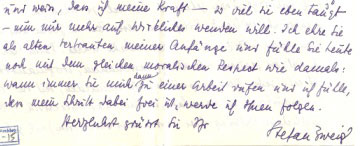 und weiss, dass ich meine Kraft – so viel sie eben taugt –
nun nur mehr auf Wirkliches wenden will. Ich ehre Sie
als alten Vertrauten meiner Anfänge und fühle Sie heute
noch mit dem gleichen moralischen Respect wie damals:
wann immer Sie mich dann zu einer Arbeit rufen und ich fühle,
dass mein Schritt dabei frei ist, werde ich Ihnen folgen.
Herzlichst grüsst Sie Ihr
Stefan Zweig